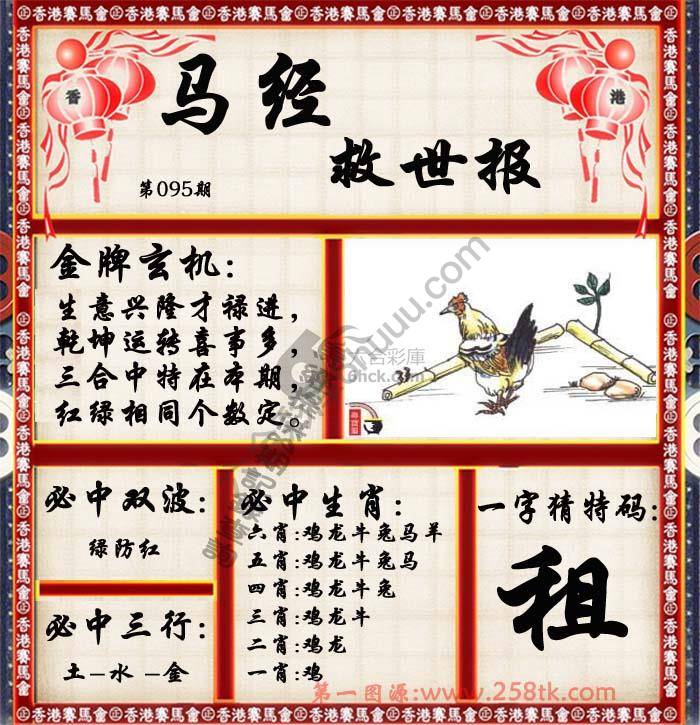 香港賽馬會
香 港
马经
救世报
第095期
金牌玄机:
生意兴隆才禄进,
乾坤运转喜事多,
三合中特在本期,
红绿相同个数定。
六合彩庫
必中双波:
绿防红
必中三行:
土-水-金
必中生肖:
六肖:鸡龙牛兔马羊
五肖:鸡龙牛兔马
四肖:鸡龙牛兔
三肖:鸡龙牛
二肖:鸡龙
一肖:鸡
一字猜特码:
租
第一图源:www.258tk.com